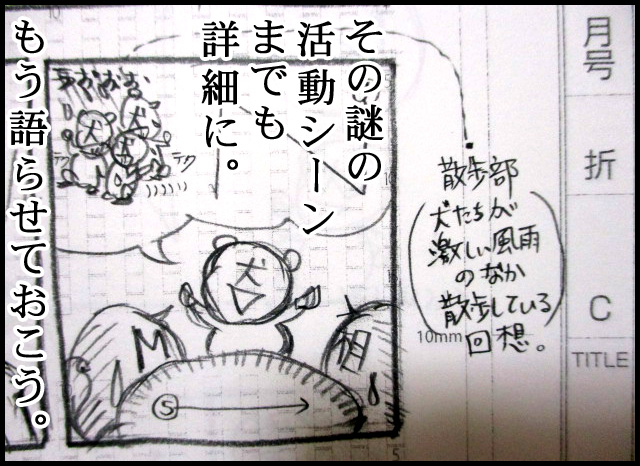 その謎の
活動シーン
までも
詳細に。
もう語らせておこう。
散歩部
犬たちが
激しい風雨
のなか
散歩している
回想。
犬
犬
テク
テク
犬
M
相
S
10mm
5
月号
折
C
TITLE